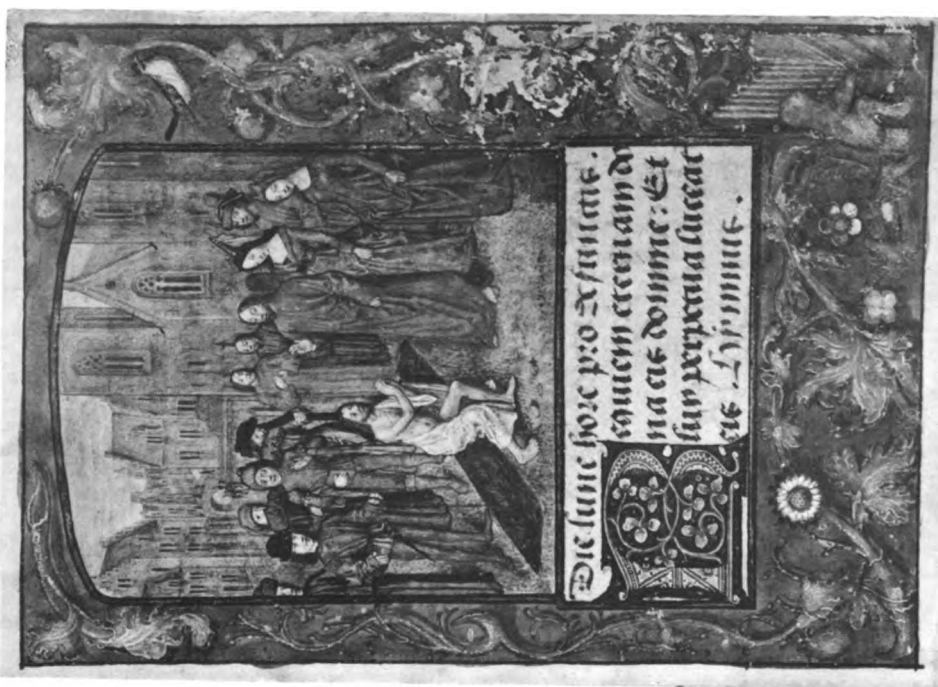 Die lune hore pro defunctis.
Requiem eternam do
na eis domine: Et
lux perpetua luceat
eis Hymnus.